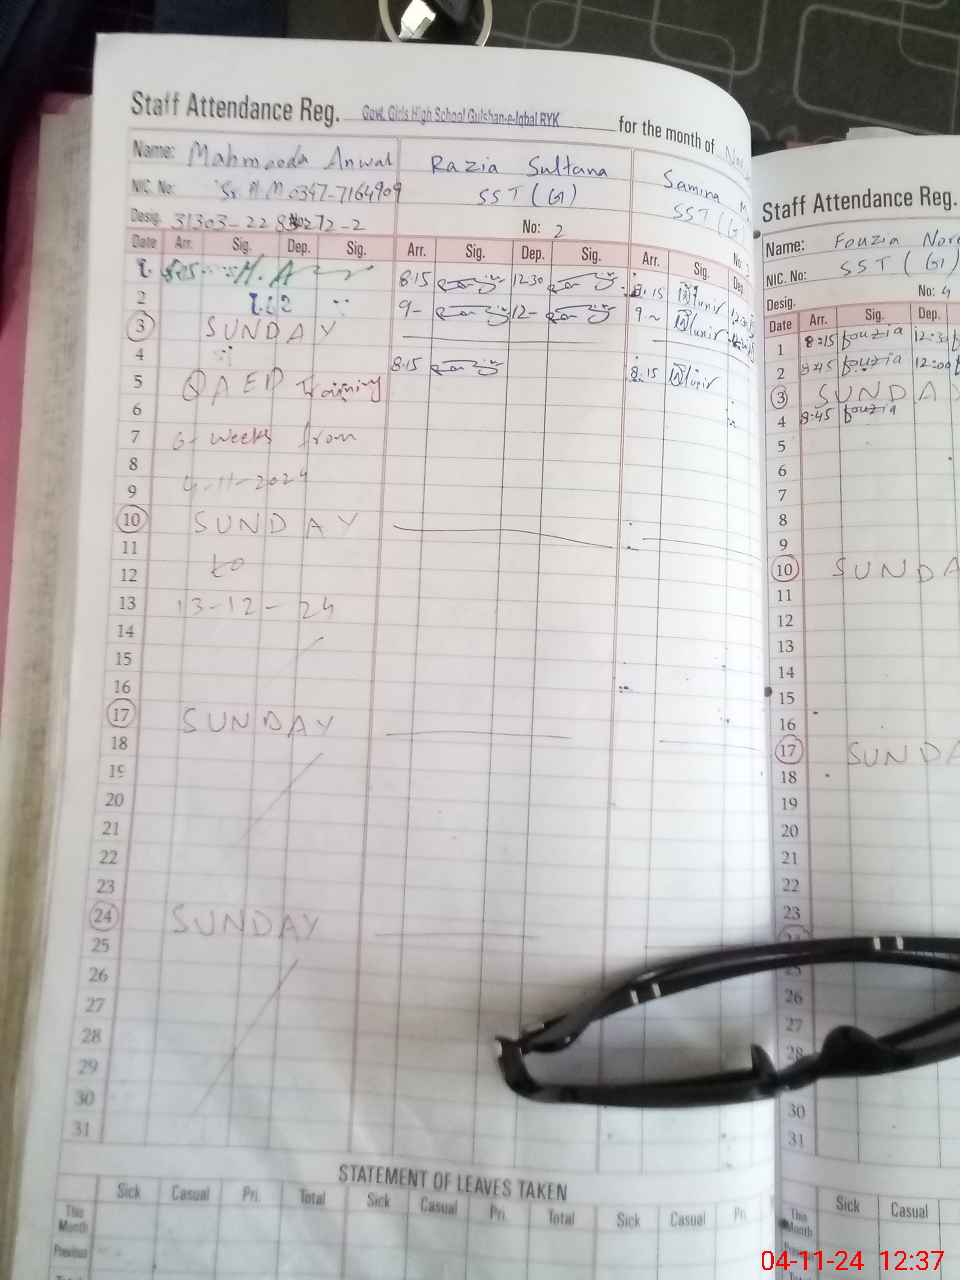 Staff Attendance Reg. Govt. Girls High School Gulshan-e-Iqbal RYK for the month of Nov
Name: Mahmooda Anwal
NIC. No: Sr. H.M 0347-7164909
Desig. 31303-22
Razia Sultana
SST (G)
No: 2
Samina M
SST (G)
No: 3
Date Arr. Sig. Dep. Sig. Arr. Sig. Dep. Sig. Arr. Sig. Dep.
1 8:15 H.A 8.15 12.30 8.15
2 9- 12- 9~
3 SUNDAY
4 8.15 8.15
5 QAED Training
6
7 6- weeks from
8
9 4-11-2024
10 SUNDAY
11
12 to
13 13-12-24
14
15
16
17 SUNDAY
18
19
20
21
22
23
24 SUNDAY
25
26
27
28
29
30
31
STATEMENT OF LEAVES TAKEN
Sick Casual Pri. Total Sick Casual Pri. Total Sick Casual Pri.
This Month
Previous
Staff Attendance Reg.
Name: Fouzia Nore
NIC. No: SST (G)
Desig. No: 4
Date Arr. Sig. Dep.
1 8:15 fouzia 12:30
2 8:45 fouzia 12:00
3 SUNDA
4 8:45 fouzia
5
6
7
8
9
10 SUNDA
11
12
13
14
15
16
17 SUNDA
18
19
20
21
22
23
24
25
26
27
28
30
31
Sick Casual
This Month
04-11-24 12:37